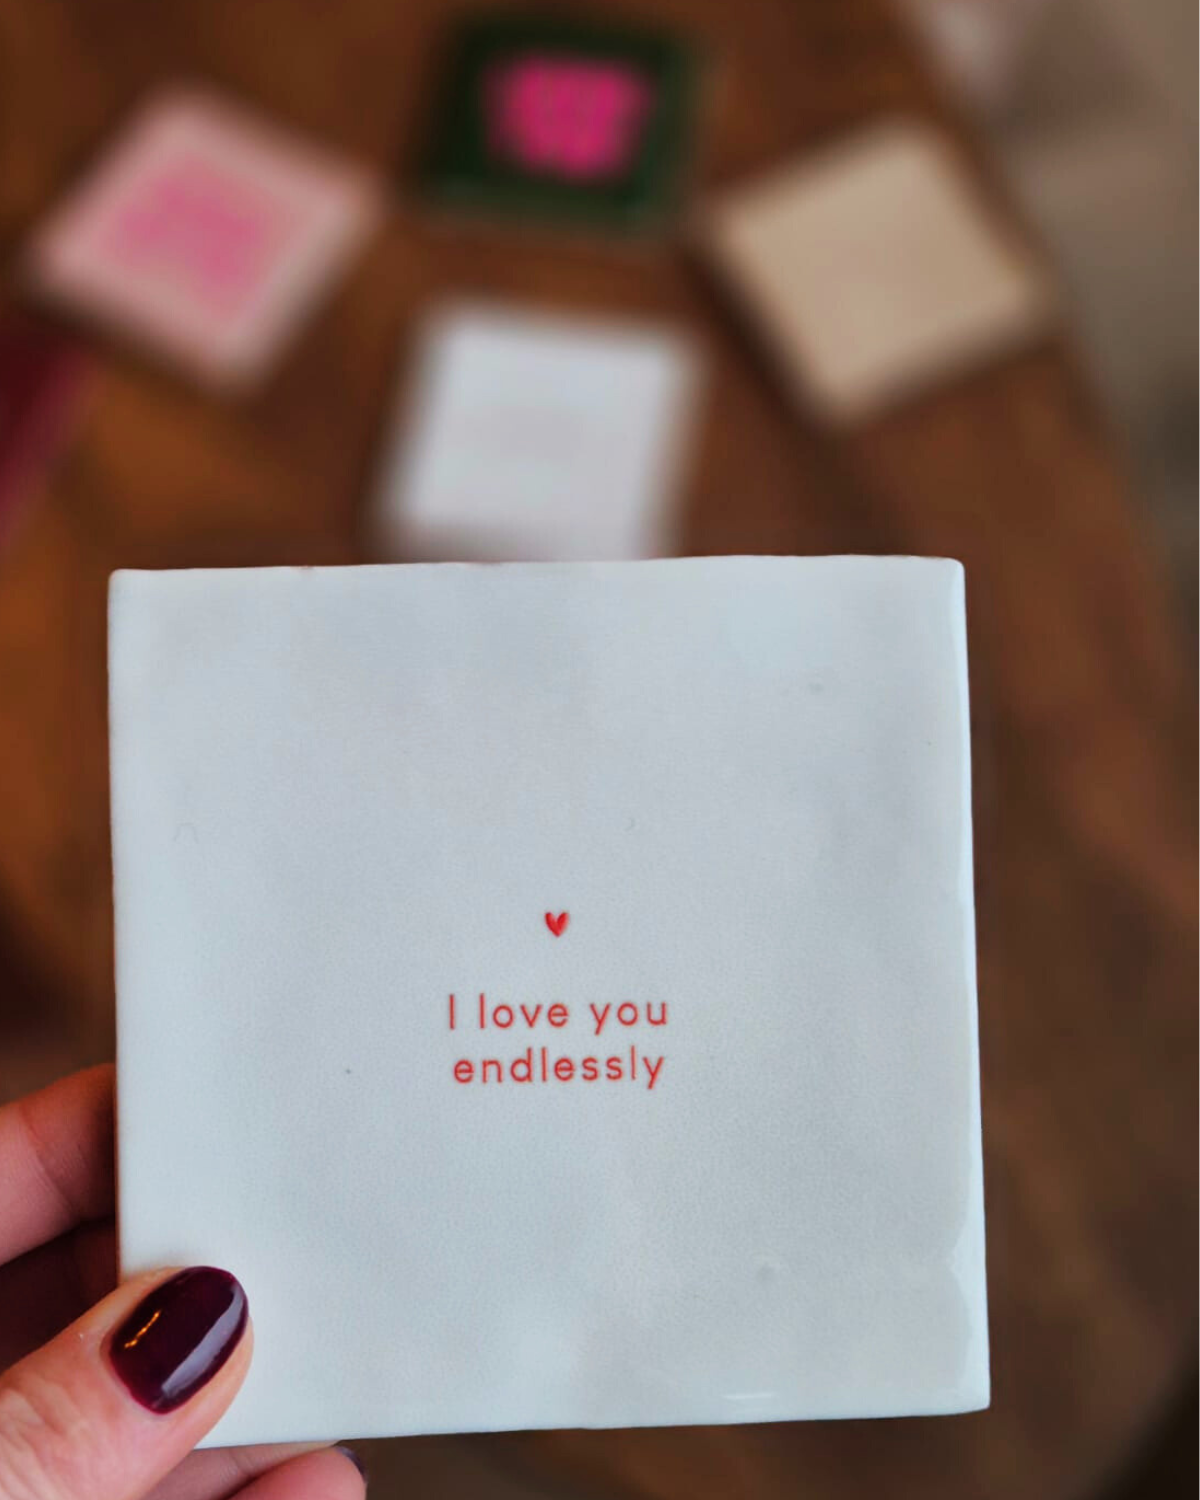 I love you
endlessly